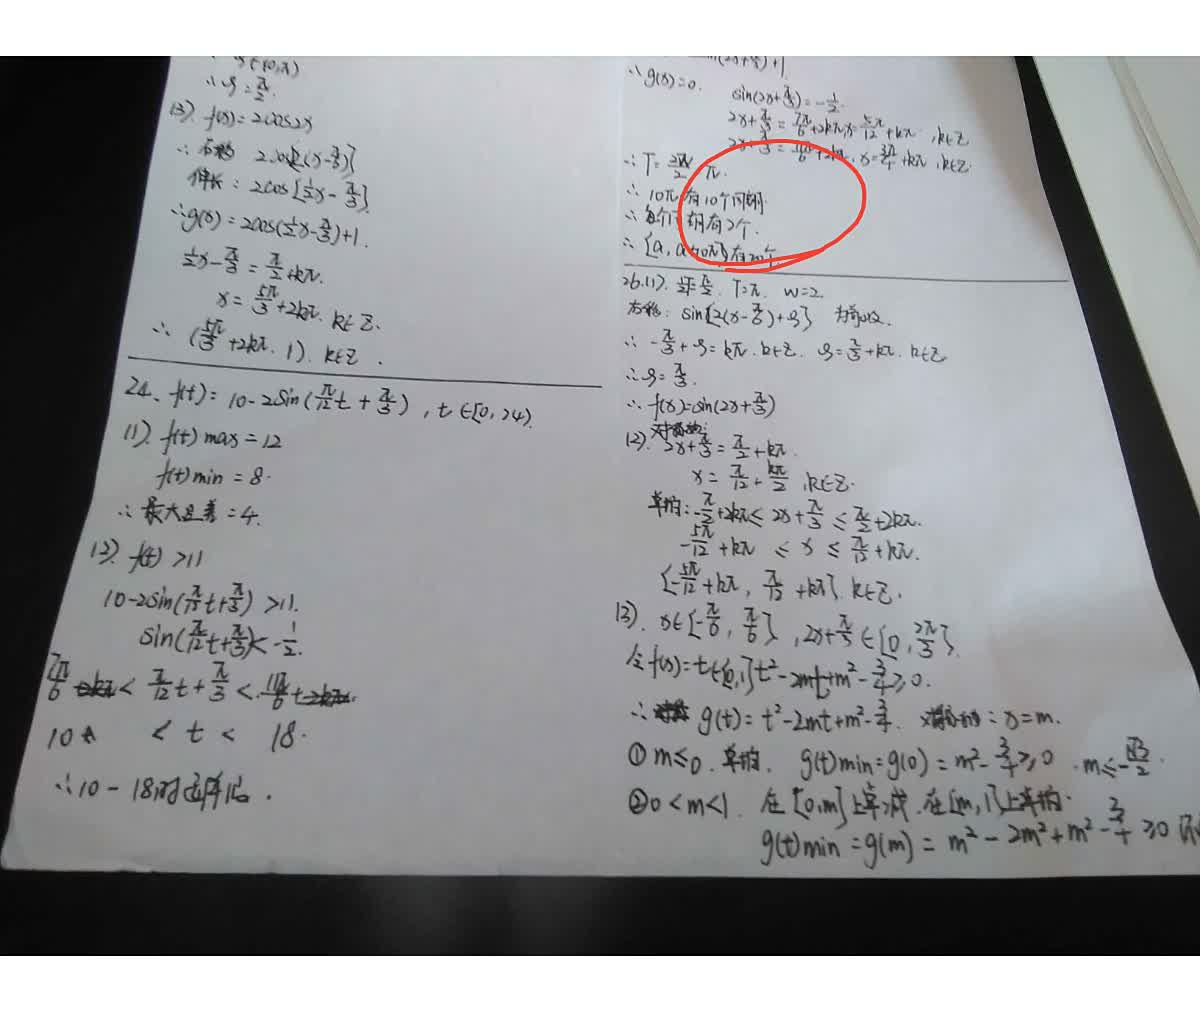 ∴ φ = π/2.
(3). f(x) = 2cos2x
∴ 右移 2cos[2(x-π/6)]
伸长: 2cos[½x - π/3].
∴ g(x) = 2cos(½x - π/3) + 1.
½x - π/3 = π/2 + kπ.
x = 5π/3 + 2kπ. k∈Z.
∴ (5π/3 + 2kπ, 1). k∈Z.
24. f(t) = 10 - 2sin(π/12 t + π/3), t∈[0, 24).
(1). f(t)max = 12
f(t)min = 8.
∴ 最大温差 = 4.
(2). f(t) > 11
10 - 2sin(π/12 t + π/3) > 11.
sin(π/12 t + π/3) < -½.
7π/6 < π/12 t + π/3 < 11π/6
10 < t < 18.
∴ 10 - 18时应降温.
∴ g(x) = 0.
sin(2x + π/3) = -½.
2x + π/3 = 7π/6 + 2kπ, x = 5π/12 + kπ, k∈Z
2x + π/3 = 11π/6 + 2kπ, x = 3π/4 + kπ, k∈Z.
∴ T = 2π/2 = π.
∴ 10π有10个周期.
∴ 每个周期有2个.
∴ [a, a+10π]有20个.
26.(1). T = π. w = 2.
右移: sin[2(x - π/6) + φ] 为奇函数.
∴ -π/3 + φ = kπ. k∈Z. φ = π/3 + kπ. k∈Z
∴ φ = π/3.
∴ f(x) = sin(2x + π/3)
(2). 对称轴: 2x + π/3 = π/2 + kπ.
x = π/12 + kπ/2, k∈Z.
单增: -π/2 + 2kπ ≤ 2x + π/3 ≤ π/2 + 2kπ.
-5π/12 + kπ ≤ x ≤ π/12 + kπ.
[-5π/12 + kπ, π/12 + kπ]. k∈Z.
(3). x∈[-π/6, π/6], 2x + π/3 ∈[0, 2π/3].
令f(x) = t∈[0,1] t² - 2mt + m² - 3/4 ≥ 0.
∴ g(t) = t² - 2mt + m² - 3/4. 对称轴: x = m.
① m ≤ 0. 单增. g(t)min = g(0) = m² - 3/4 ≥ 0. m ≤ -√3/2
② 0 < m < 1. 在[0, m]上单减. 在[m, 1]上单增.
g(t)min = g(m) = m² - 2m² + m² - 3/4 ≥ 0